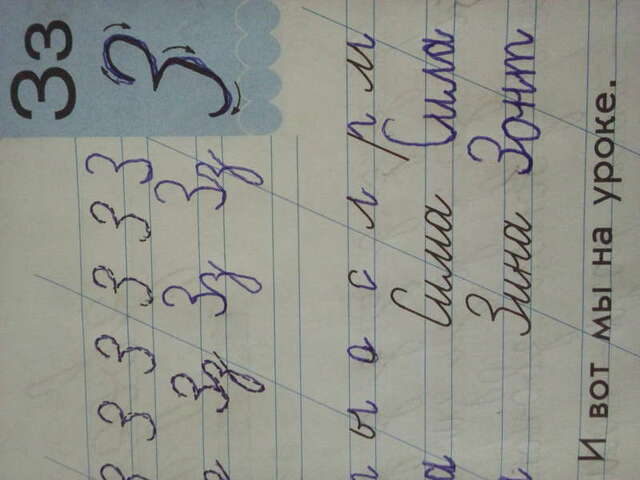 Зз
З
З З З З З З
Зз Зз Зз
ы а с л р м
а Сима Сила
Зина Зонт
И вот мы на уроке.